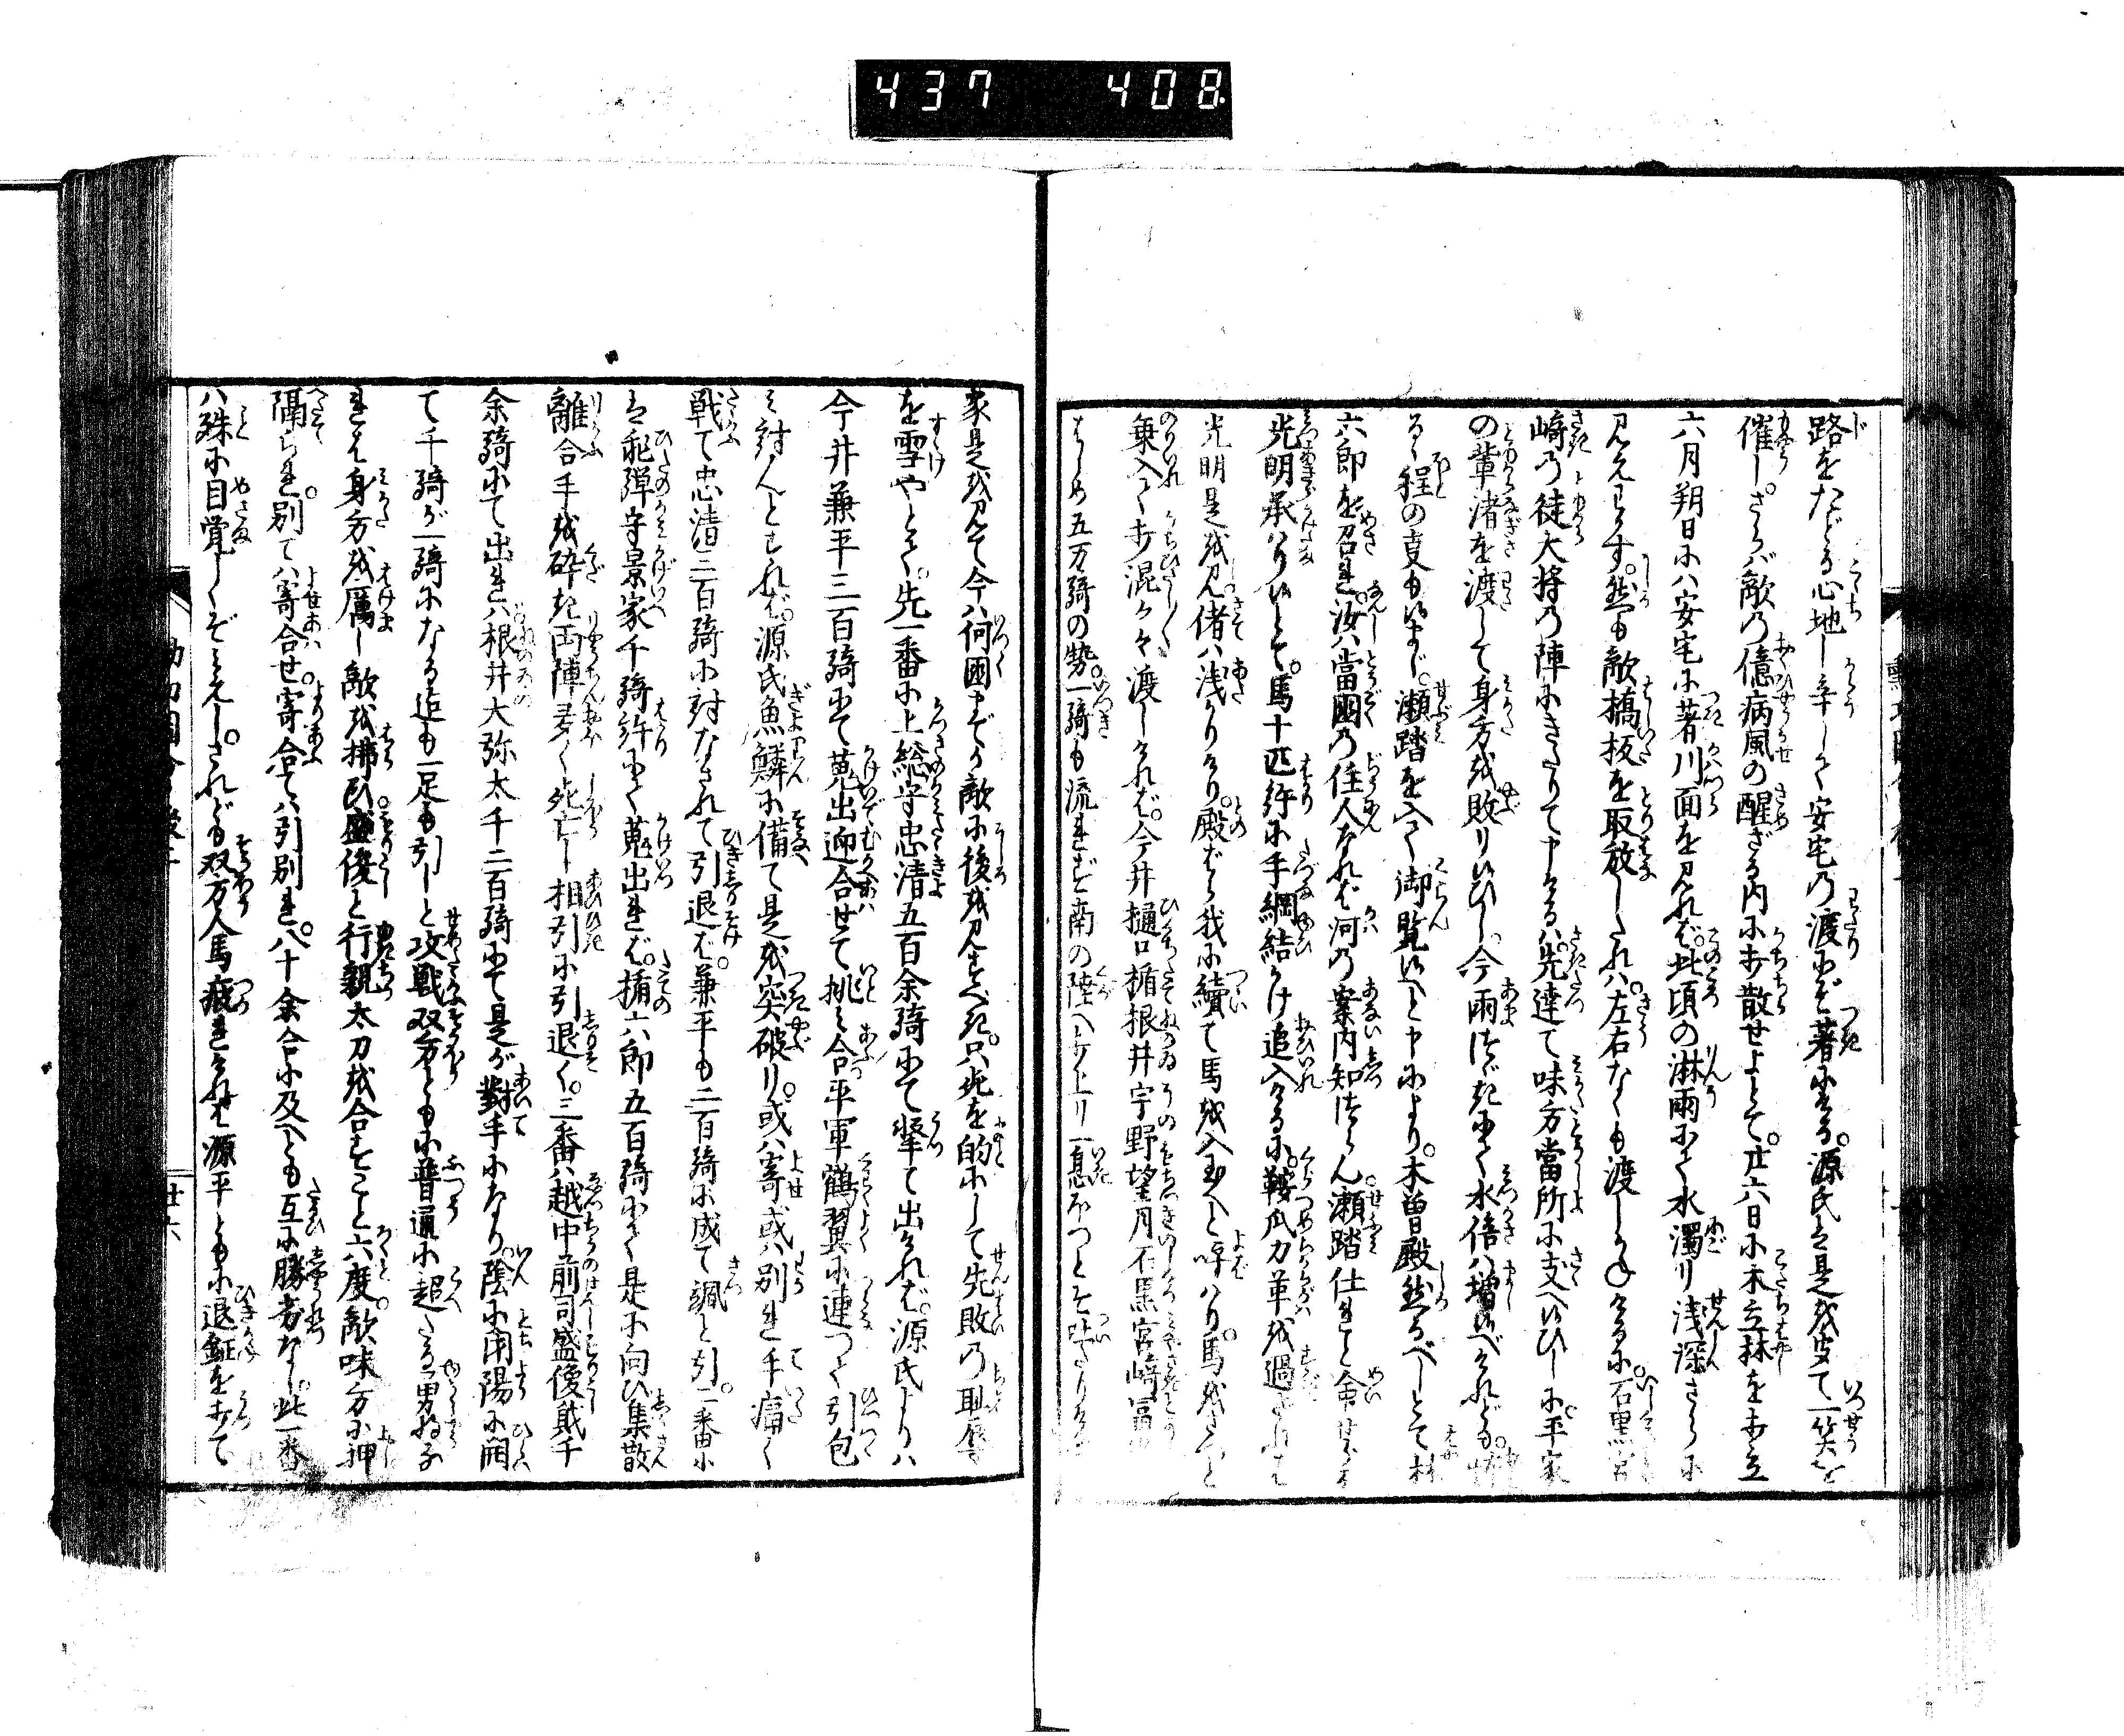 437 408
路をたどる心地し辛じて安宅の渡にぞ著にける。源氏は是を笑て一笑を
催し。さらバ敵の憶病風の醒ざる内に打散せよとて。廿六日に木立林を打立
六月朔日にハ安宅に著川面を見れバ。此頃の淋雨にて水濁り浅深さらに
見えわかず。然も敵橋板を取放したれバ。左右なくも渡しかねけるに。石黒宮
崎の徒大将の陣にきたりて申けるハ。先達て味方當所に支へ候ひしに。平家
の輩渚を渡して身方を敗り候ひし。今雨つゞきにて水倍ハ増候べけれども。
る程の事も候まじ。瀬踏を入て御覧候へと申により。木曽殿然るべしとて
六郎を召れ。汝ハ當國の住人なれバ河の案内知つらん。瀬踏仕れと命せ
光明承ハり候とて。馬十匹許に手綱結かけ追入けるに。鞍爪力革を過ざれバ
光明是を見。偖ハ浅かりけり。殿ばら我に續て馬を入玉へと呼ハり。馬をさつと
乗入て打混々々渡しけれバ。今井樋口楯根井宇野望月石黒宮崎冨
はじめ五万騎の勢。一騎も流れず南の陸へ打上り一息ほつとぞ
家是を見て今ハ何國までか敵に後を見すべき。只死を的にして先敗の恥辱
を雪やとて。先一番に上総守忠清五百余騎にて撃て出けれバ。源氏よりハ
今井兼平三百騎にて蒐出迎合せて挑み合。平軍鶴翼に連つて引包
み討んとすれバ。源氏魚鱗に備て是を突破り。或ハ寄或ハ別れ手痛く
戦て忠清三百騎に討なされて引退バ。兼平も二百騎に成て颯と引。二番に
は飛弾守景家千騎許にて蒐出れバ。楯六郎五百騎にて是に向ひ集散
離合手を砕き両陣多く死亡し相引に引退く。三番ハ越中前司盛俊貮千
余騎にて出れバ根井大弥太千二百騎にて是が對手になり。陰に閉陽に開
て千騎が一騎になる迄も一足も引じと攻戦双方ともに普通に超たる男好子
れバ身方を厲し敵を拂ひ。盛俊と行親太刀を合すこと六度。敵味方に押
隔られ。別てハ寄合せ。寄合てハ引別れ。八十余合に及べども互に勝劣なし。此一番
ハ殊に目覚しくぞみえし。されども双方人馬疲れけれバ源平ともに退鉦を打て
廿六